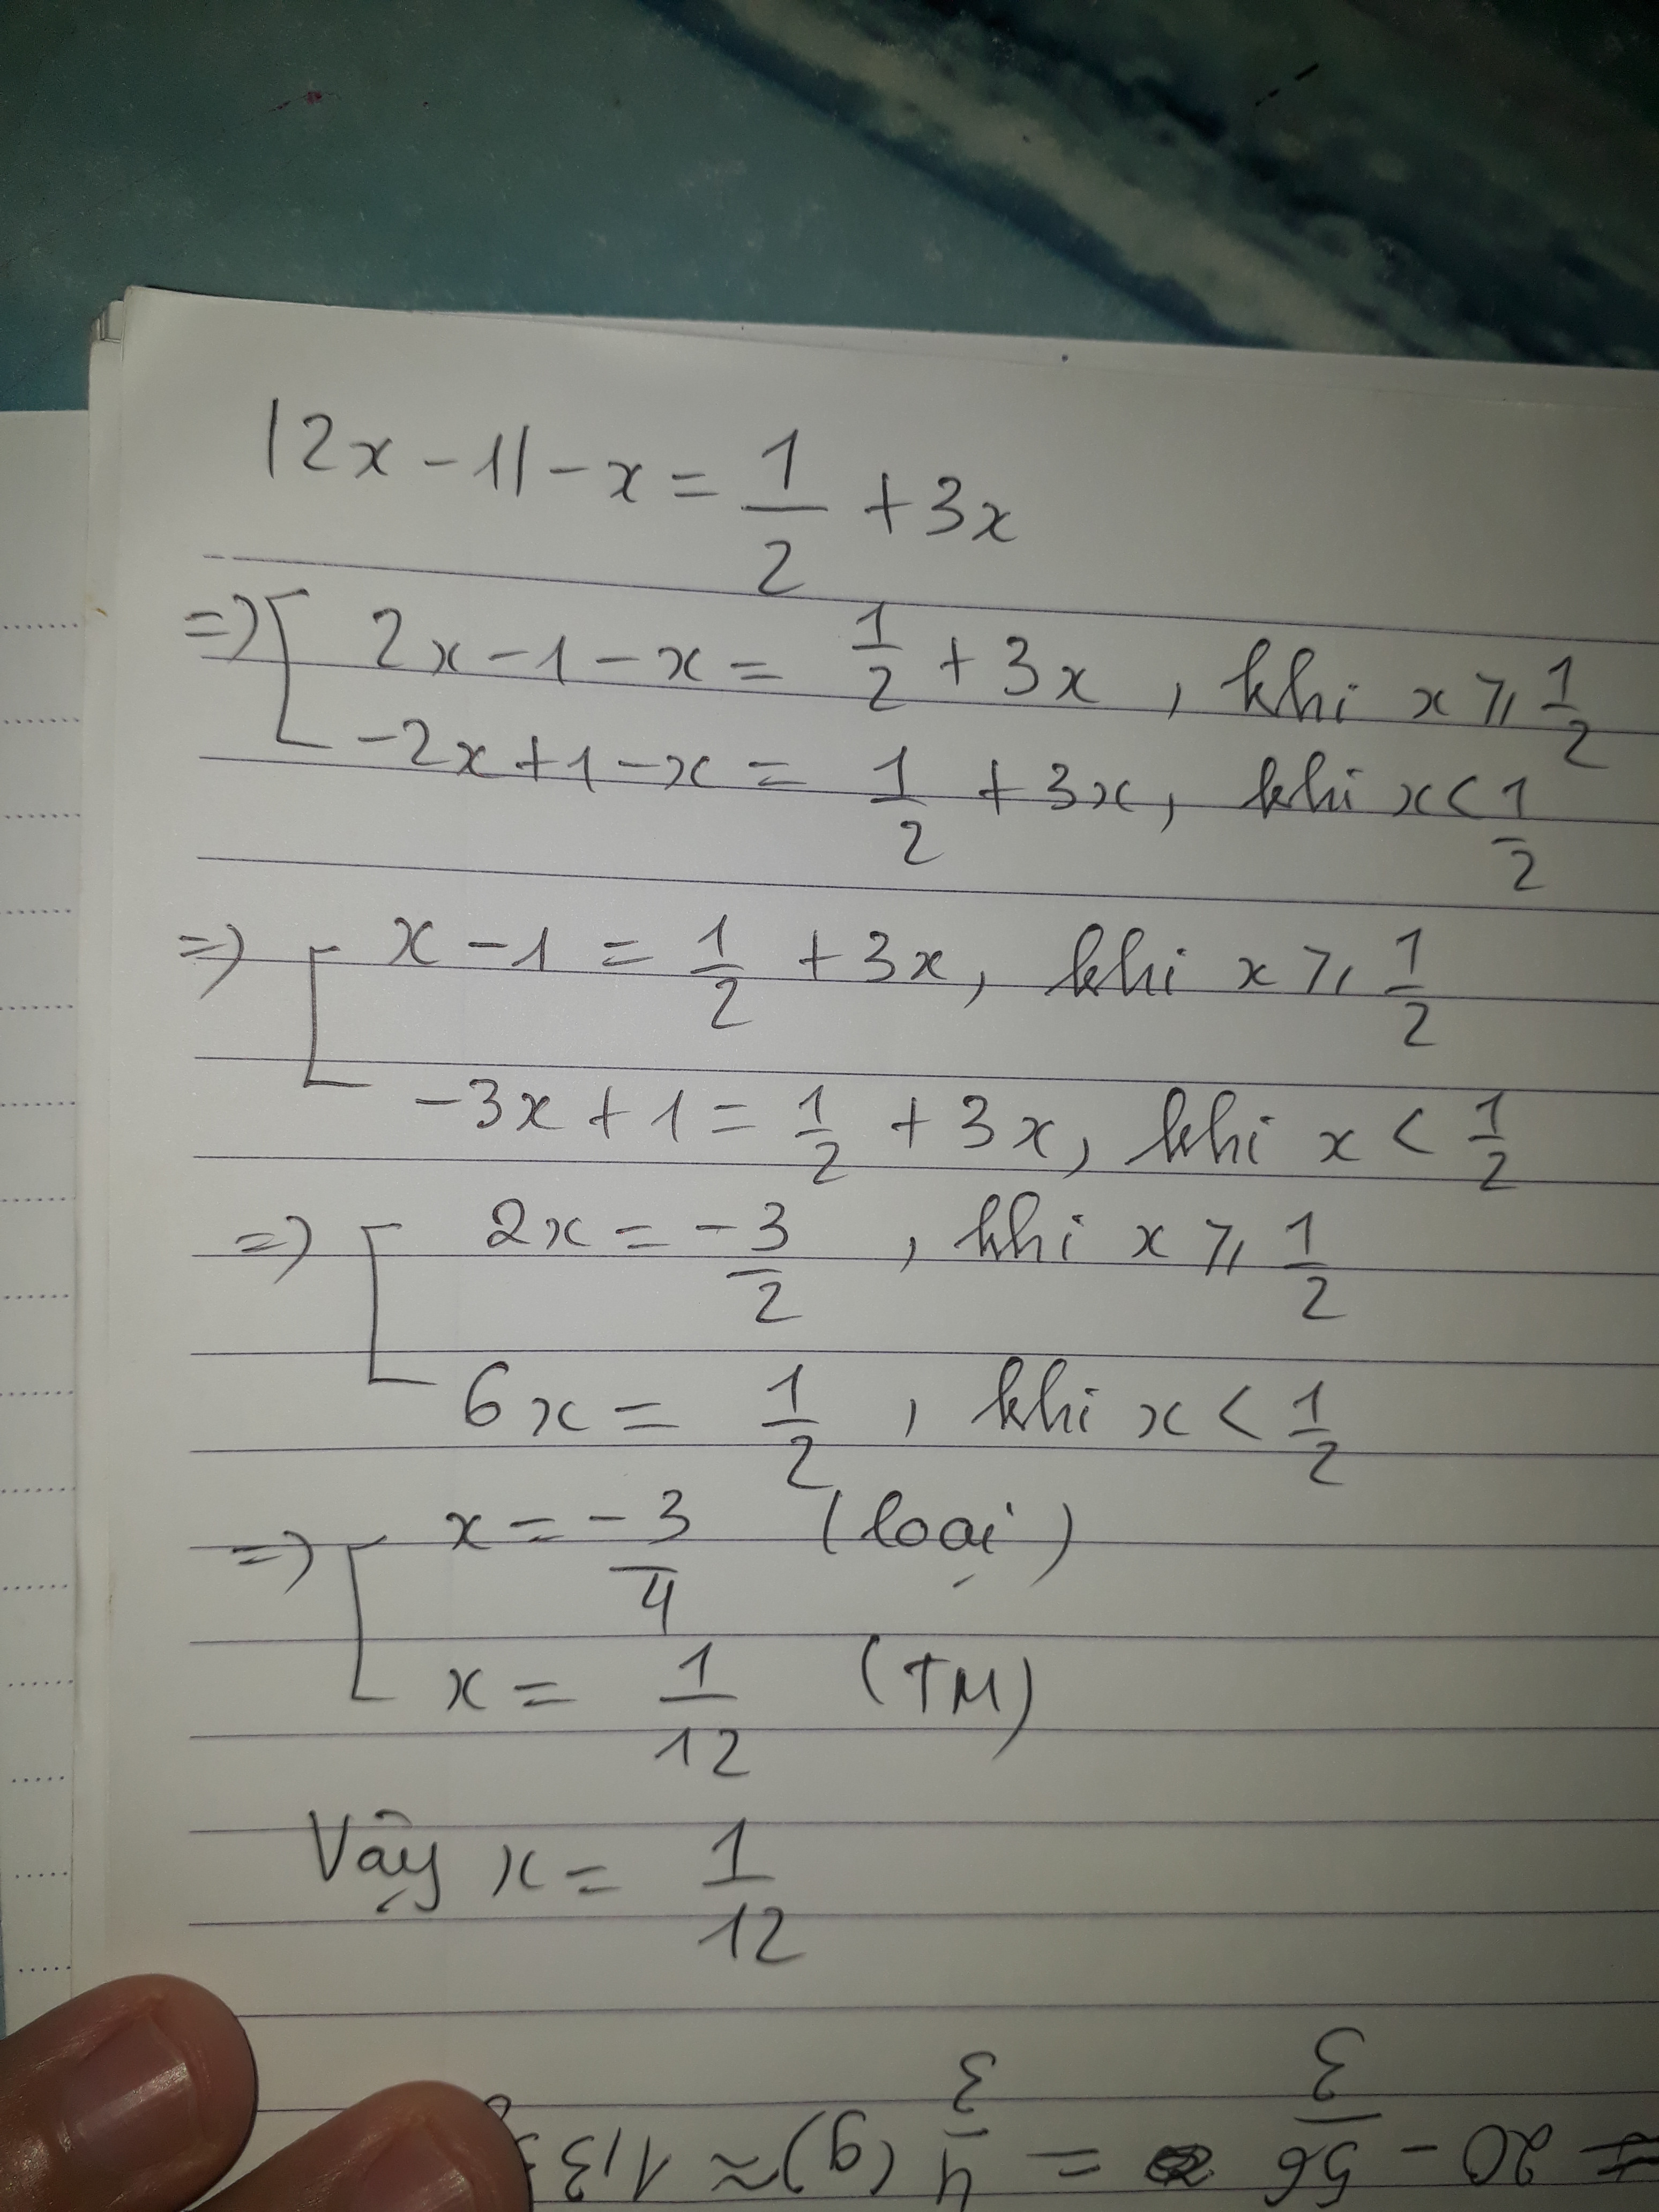 |2x - 1| - x = 1/2 + 3x
=> [ 2x - 1 - x = 1/2 + 3x , khi x ⩾ 1/2
-2x + 1 - x = 1/2 + 3x, khi x < 1/2
=> [ x - 1 = 1/2 + 3x, khi x ⩾ 1/2
-3x + 1 = 1/2 + 3x, khi x < 1/2
=> [ 2x = -3/2 , khi x ⩾ 1/2
6x = 1/2 , khi x < 1/2
=> [ x = -3/4 (loại)
x = 1/12 (TM)
Vậy x = 1/12
= 20 - 56/3 = 4/3 (g) ≈ 1,33